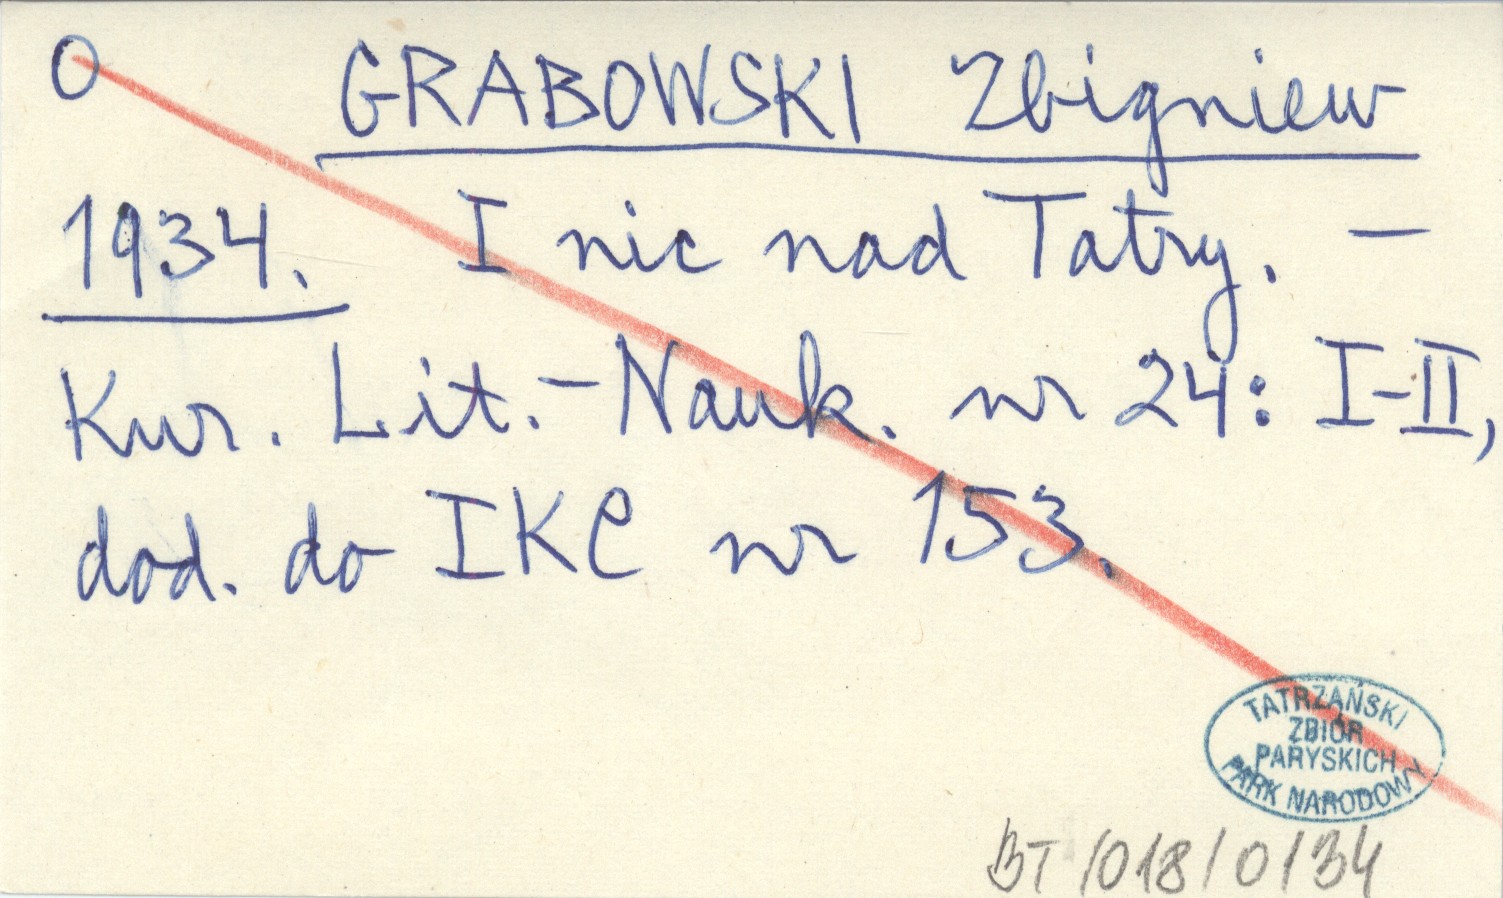 O GRABOWSKI Zbigniew
1934. I nic nad Tatry. –
Kur. Lit.-Nauk. nr 24: I-II,
dod. do IKC nr 153.
TATRZAŃSKI
ZBIÓR
PARYSKICH
PARK NARODOWY
BT/018/0/34